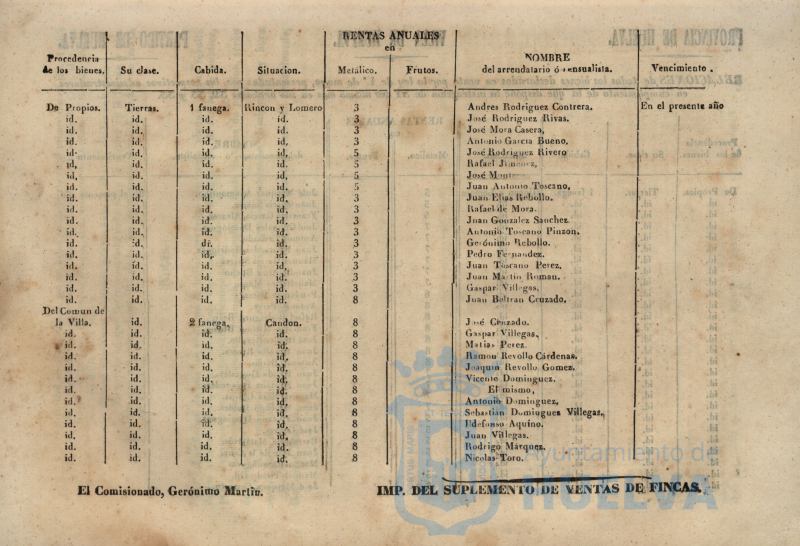 RENTAS ANUALES
en
Procedencia de los bienes. Su clase. Cabida. Situacion. Metálico. Frutos. NOMBRE del arrendatario ó censualista. Vencimiento.
De Propios. Tierras. 1 fanega. Rincon y Lomero 3 Andres Rodriguez Contrera. En el presente año
id. id. id. id. 3 José Rodriguez Rivas.
id. id. id. id. 3 José Mora Casera,
id. id. id. id. 3 Antonio Garcia Bueno.
id. id. id. id. 5 José Rodriguez Rivero
id, id. id. id. 5 Rafael Jimenez,
id, id. id. id. 5 José
id, id. id. id. 5 Juan Antonio Toscano,
id. id. id. id. 3 Juan Elias Rebollo.
id. id. id. id. 3 Rafael de Mora.
id. id. id. id. 3 Juan Gonzalez Sanchez.
id. id. id. id. 3 Antonio Toscano Pinzon.
id. id. di. id. 3 Gerónimo Rebollo.
id. id. id. id. 3 Pedro Fernandez.
id. id. id. id. 3 Juan Toscano Perez.
id. id. id. id. 3 Juan Martin Roman.
id. id. id. id. 3 Gaspar Villegas,
id. id. id. id. 8 Juan Beltran Cruzado.
Del Comun de
la Villa. id. 2 fanega. Candon. 8 José Cruzado.
id. id. id. id. 8 Gaspar Villegas,
id. id. id. id. 8 Matias Perez.
id. id. id. id. 8 Ramon Revollo Cárdenas.
id. id. id. id. 8 Joaquin Revollo Gomez.
id. id. id. id. 8 Vicente Dominguez.
id. id. id. id. 8 El mismo,
id. id. id. id. 8 Antonio Dominguez,
id. id. id. id. 8 Sebastian Domingues Villegas.
id. id. id. id. 8 Ildefonso Aquino.
id. id. id. id. 8 Juan Villegas.
id. id. id. id. 8 Rodrigo Márquez.
id. id. id. id. 8 Nicolas Toro.
El Comisionado, Gerónimo Martin. IMP. DEL SUPLEMENTO DE VENTAS DE FINCAS.
ayuntamiento de
HUELVA